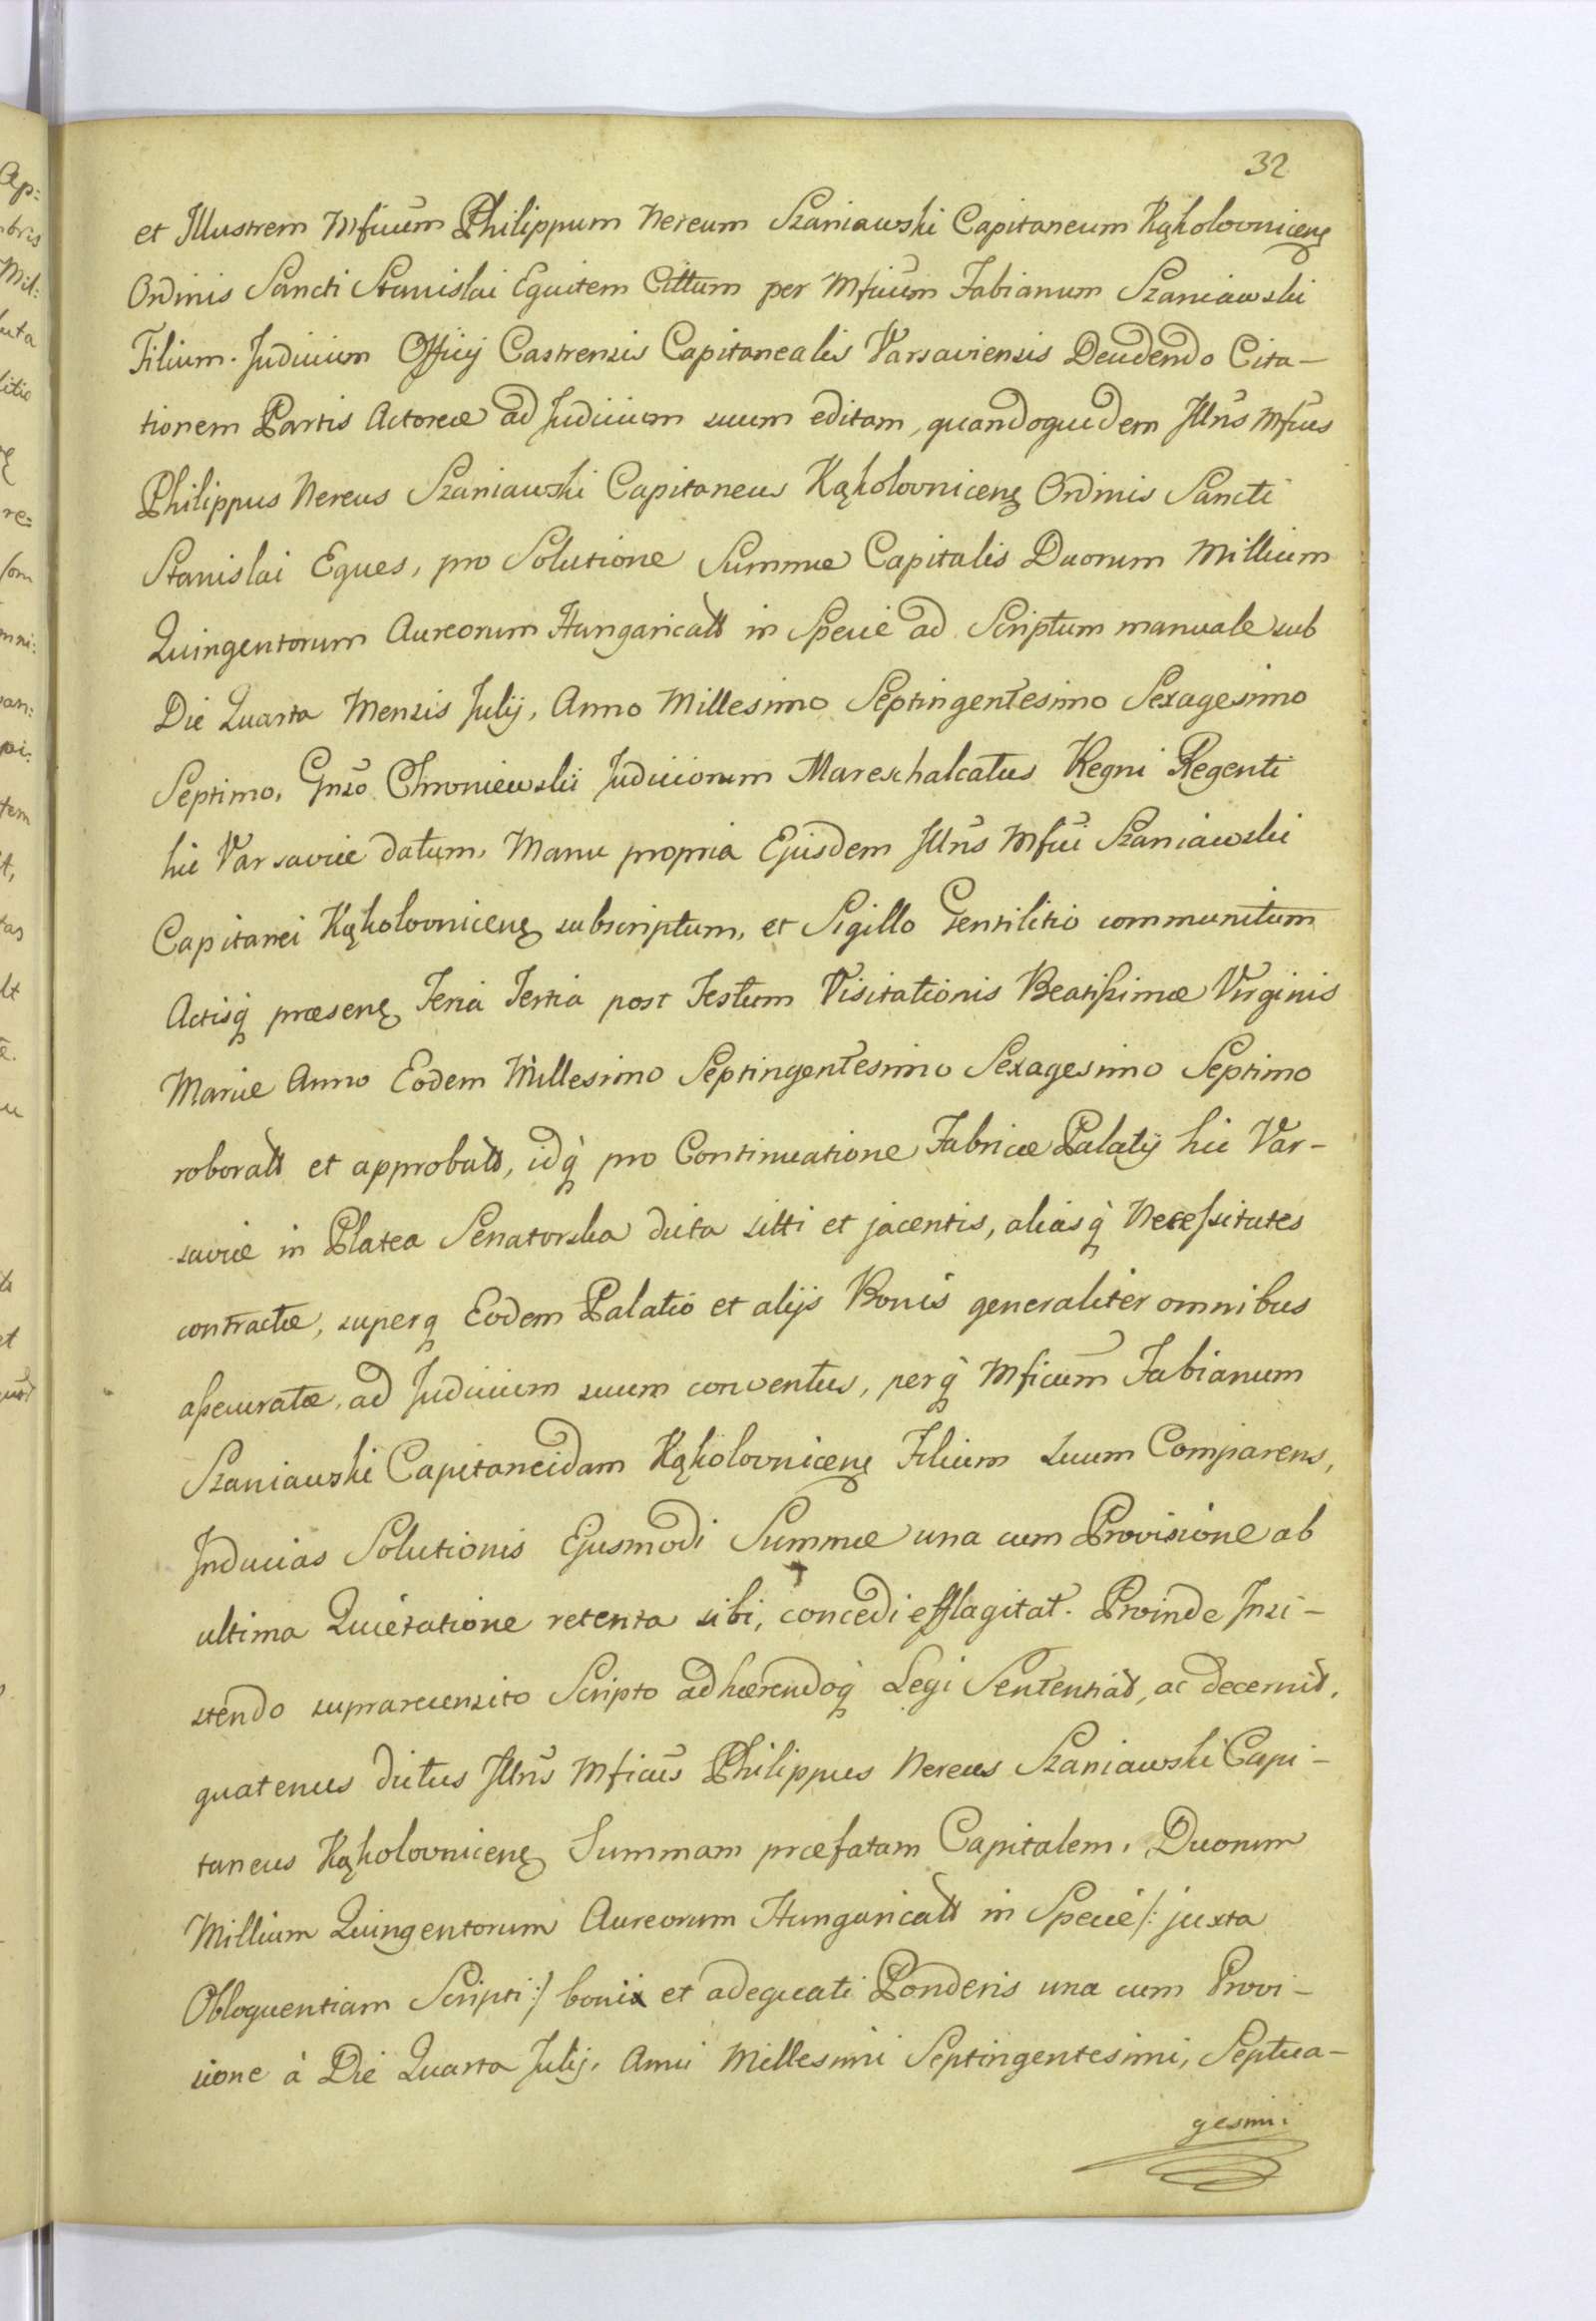 32
et Illustrem Mficum Philippum Nereum Szaniawski Capitaneum Kąkolovnicenꝫ
Ordinis Sancti Stanislai Equitem Cittum per Mficum Fabianum Szaniawski
Filium. Judicium Officij Castrensis Capitanealis Varsaviensis Decidendo Cita-
tionem Partis Actoreæ ad Judicium suum editam, quandoquidem Illris Mficus
Philippus Nereus Szaniawski Capitaneus Kąkolovnicenꝫ Ordinis Sancti
Stanislai Eques, pro Solutione Summæ Capitalis Duorum Millium
Quingentorum Aureorum Hungaricall in Specie ad Scriptum manuale sub
Die Quarta Mensis Julij, Anno Millesimo Septingentesimo Sexagesimo
Septimo, Gnso Chroniewski Judiciorum Mareschalcatus Regni Regenti
hic Varsaviæ datum, Manu propria Ejusdem Illris Mfici Szaniawski
Capitanei Kąkolovnicenꝫ subscriptum, et Sigillo Gentilitio communitum
Actisq̃ præsenꝫ Feria Tertia post Festum Visitationis Beatissimæ Virginis
Mariæ Anno Eodem Millesimo Septingentesimo Sexagesimo Septimo
roborall et approball, idq̃ pro Continuatione Fabricæ Palatij hic Var-
saviæ in Platea Senatorska dicta sitti et jacentis, aliasq̃ Necessitates
contractæ, superq̃ Eodem Palatio et alijs Bonis generaliter omnibus
assecuratæ, ad Judicium suum conventus, perq̃ Mficum Fabianum
Szaniawski Capitaneidam Kąkolovnicenꝫ Filium suum Comparens,
Inducias Solutionis Ejusmodi Summæ una cum Provisione ab
ultima Quietatione retenta sibi, concedi efflagitat. Proinde Insi-
stendo suprarecensito Scripto adhærendoq̃ Legi Sententiat, ac decernit,
quatenus dictus Illris Mficus Philippus Nereus Szaniawski Capi-
taneus Kąkolovnicenꝫ Summam præfatam Capitalem, Duorum
Millium Quingentorum Aureorum Hungaricall in Specie /: juxta
Obloquentiam Scripti :/ boni et adequati Ponderis una cum Provi-
sione à Die Quarta Julij, Anni Millesimi Septingentesimi, Septua-
gesimi